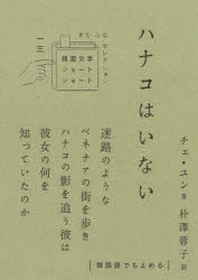 きむ ふな
セレクション
韓国文学
ショート
ショート
一三
ハナコはいない
チェ・ユン 著
朴澤蓉子 訳
迷路のような
ベネチアの街を歩き
ハナコの影を追う彼は
彼女の何を
知っていたのか
韓国語でもよめる